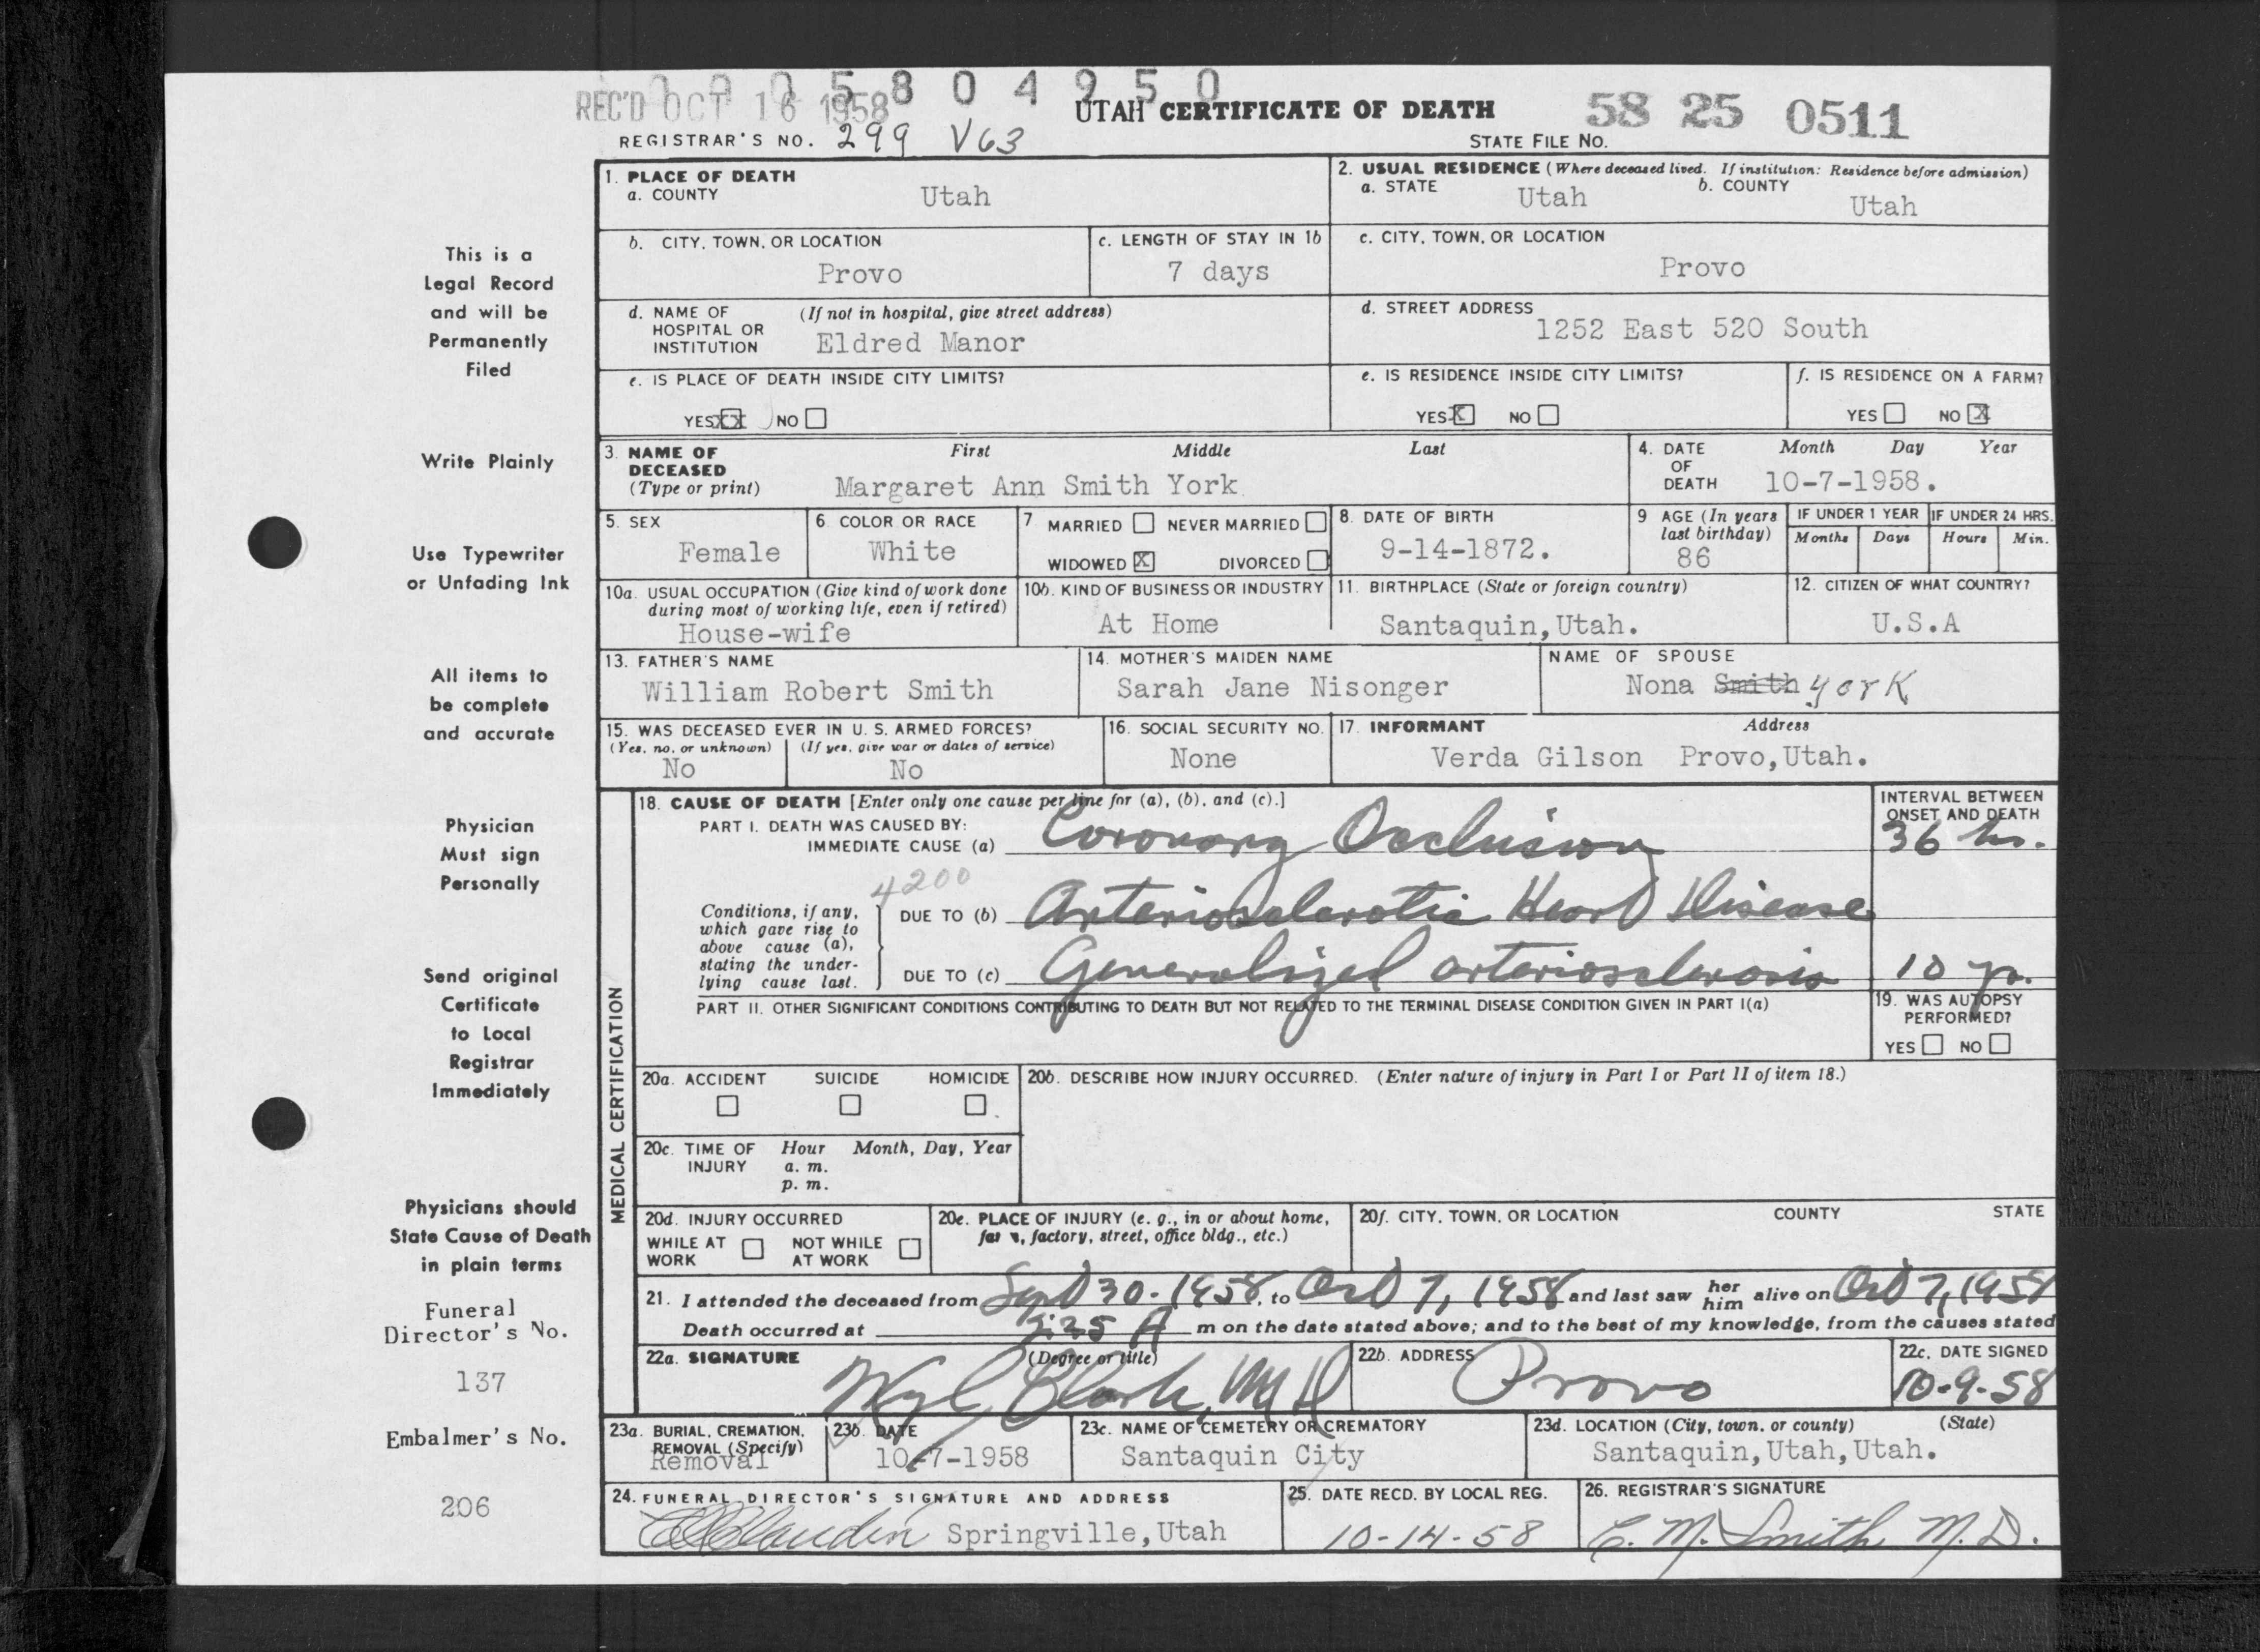 0 0 0 5 8 0 4 9 5 0
REC'D OCT 16 1958
UTAH CERTIFICATE OF DEATH
58 25 0511
REGISTRAR'S NO. 299 V63
STATE FILE NO.
This is a
Legal Record
and will be
Permanently
Filed
Write Plainly
Use Typewriter
or Unfading Ink
All items to
be complete
and accurate
Physician
Must sign
Personally
Send original
Certificate
to Local
Registrar
Immediately
Physicians should
State Cause of Death
in plain terms
Funeral
Director's No.
137
Embalmer's No.
206
1. PLACE OF DEATH
a. COUNTY Utah
2. USUAL RESIDENCE (Where deceased lived. If institution: Residence before admission)
a. STATE Utah b. COUNTY Utah
b. CITY, TOWN, OR LOCATION
Provo
c. LENGTH OF STAY IN 1b
7 days
c. CITY, TOWN, OR LOCATION
Provo
d. NAME OF (If not in hospital, give street address)
HOSPITAL OR
INSTITUTION Eldred Manor
d. STREET ADDRESS
1252 East 520 South
e. IS PLACE OF DEATH INSIDE CITY LIMITS?
YES XX NO
e. IS RESIDENCE INSIDE CITY LIMITS?
YES X NO
f. IS RESIDENCE ON A FARM?
YES NO X
3. NAME OF First Middle Last
DECEASED
(Type or print) Margaret Ann Smith York
4. DATE Month Day Year
OF
DEATH 10-7-1958.
5. SEX
Female
6. COLOR OR RACE
White
7. MARRIED NEVER MARRIED
WIDOWED X DIVORCED
8. DATE OF BIRTH
9-14-1872.
9 AGE (In years
last birthday)
86
IF UNDER 1 YEAR
Months Days
IF UNDER 24 HRS.
Hours Min.
10a. USUAL OCCUPATION (Give kind of work done
during most of working life, even if retired)
House-wife
10b. KIND OF BUSINESS OR INDUSTRY
At Home
11. BIRTHPLACE (State or foreign country)
Santaquin,Utah.
12. CITIZEN OF WHAT COUNTRY?
U.S.A
13. FATHER'S NAME
William Robert Smith
14. MOTHER'S MAIDEN NAME
Sarah Jane Nisonger
NAME OF SPOUSE
Nona Smith York
15. WAS DECEASED EVER IN U. S. ARMED FORCES?
(Yes, no, or unknown) (If yes, give war or dates of service)
No No
16. SOCIAL SECURITY NO.
None
17. INFORMANT Address
Verda Gilson Provo,Utah.
MEDICAL CERTIFICATION
18. CAUSE OF DEATH [Enter only one cause per line for (a), (b), and (c).]
PART I. DEATH WAS CAUSED BY:
IMMEDIATE CAUSE (a) Coronary Occlusion
INTERVAL BETWEEN
ONSET AND DEATH
36 hr.
4200
Conditions, if any,
which gave rise to
above cause (a),
stating the under-
lying cause last.
DUE TO (b) Arteriosclerotic Heart Disease
DUE TO (c) Generalized arteriosclerosis
10 yr.
PART II. OTHER SIGNIFICANT CONDITIONS CONTRIBUTING TO DEATH BUT NOT RELATED TO THE TERMINAL DISEASE CONDITION GIVEN IN PART I(a)
19. WAS AUTOPSY
PERFORMED?
YES NO
20a. ACCIDENT SUICIDE HOMICIDE
20b. DESCRIBE HOW INJURY OCCURRED. (Enter nature of injury in Part I or Part II of item 18.)
20c. TIME OF Hour Month, Day, Year
INJURY a. m.
p. m.
20d. INJURY OCCURRED
WHILE AT NOT WHILE
WORK AT WORK
20e. PLACE OF INJURY (e. g., in or about home,
farm, factory, street, office bldg., etc.)
20f. CITY, TOWN, OR LOCATION COUNTY STATE
21. I attended the deceased from Sept 30-1958, to Oct 7, 1958 and last saw her him alive on Oct 7, 1958
Death occurred at A m on the date stated above; and to the best of my knowledge, from the causes stated
22a. SIGNATURE (Degree or title)
Clark, MD
22b. ADDRESS
Provo
22c. DATE SIGNED
10-9-58
23a. BURIAL, CREMATION,
REMOVAL (Specify)
Removal
23b. DATE
10-7-1958
23c. NAME OF CEMETERY OR CREMATORY
Santaquin City
23d. LOCATION (City, town, or county) (State)
Santaquin,Utah,Utah.
24. FUNERAL DIRECTOR'S SIGNATURE AND ADDRESS
Springville,Utah
25. DATE RECD. BY LOCAL REG.
10-14-58
26. REGISTRAR'S SIGNATURE
C. M. Smith M.D.